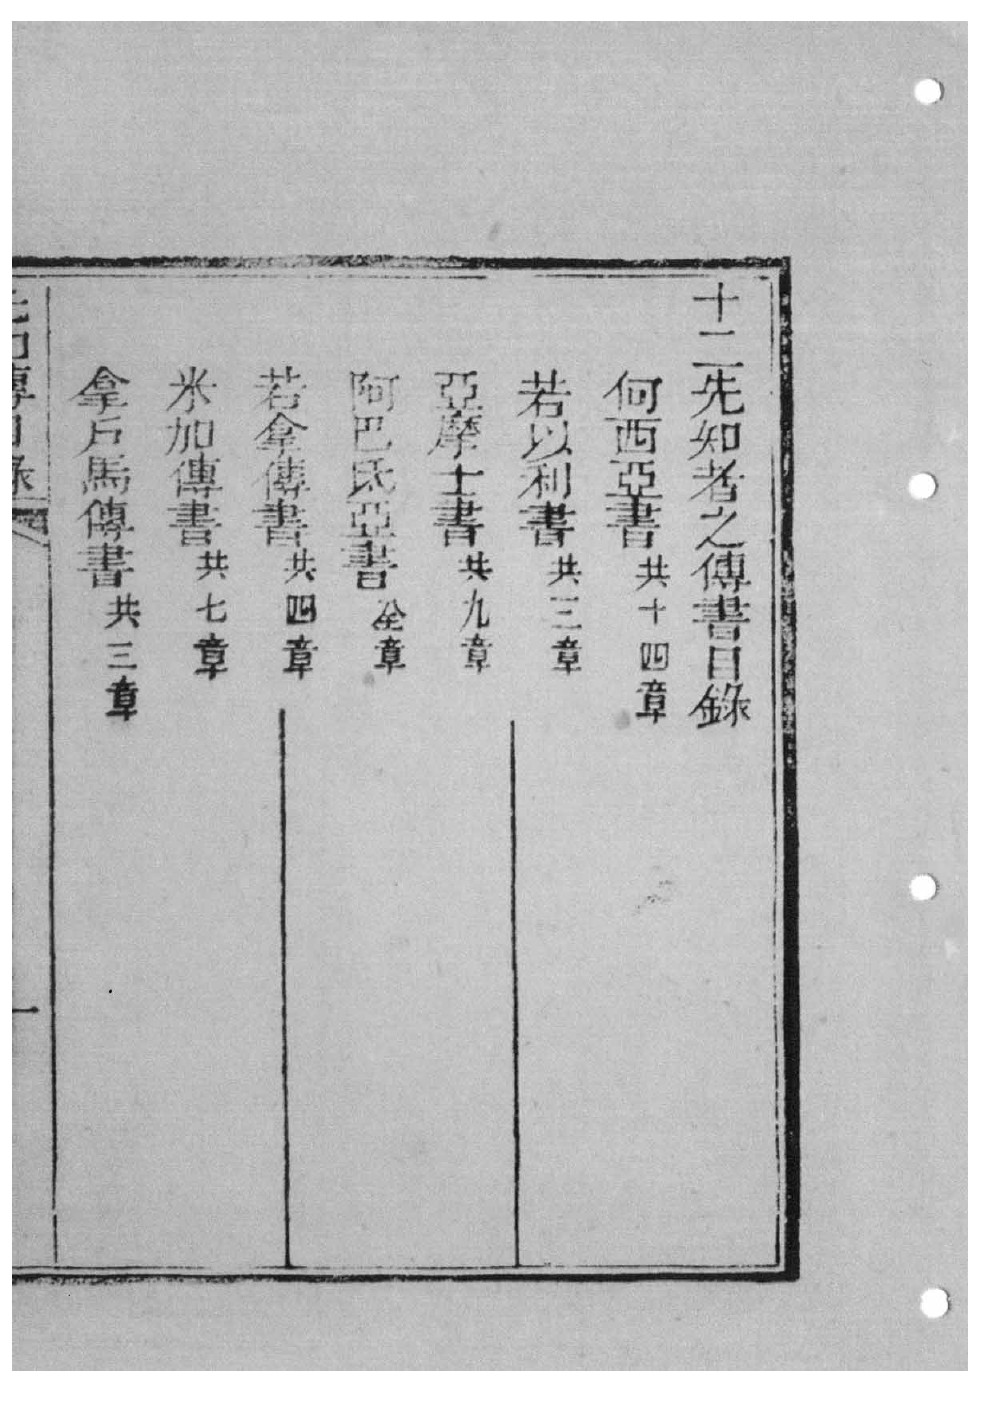 十二先知者之傳書目錄
何西亞書 共十四章
若以利書 共三章
亞摩士書 共九章
阿巴氐亞書 全章
若拿傳書 共四章
米加傳書 共七章
拿戶馬傳書 共三章
傳目錄 一